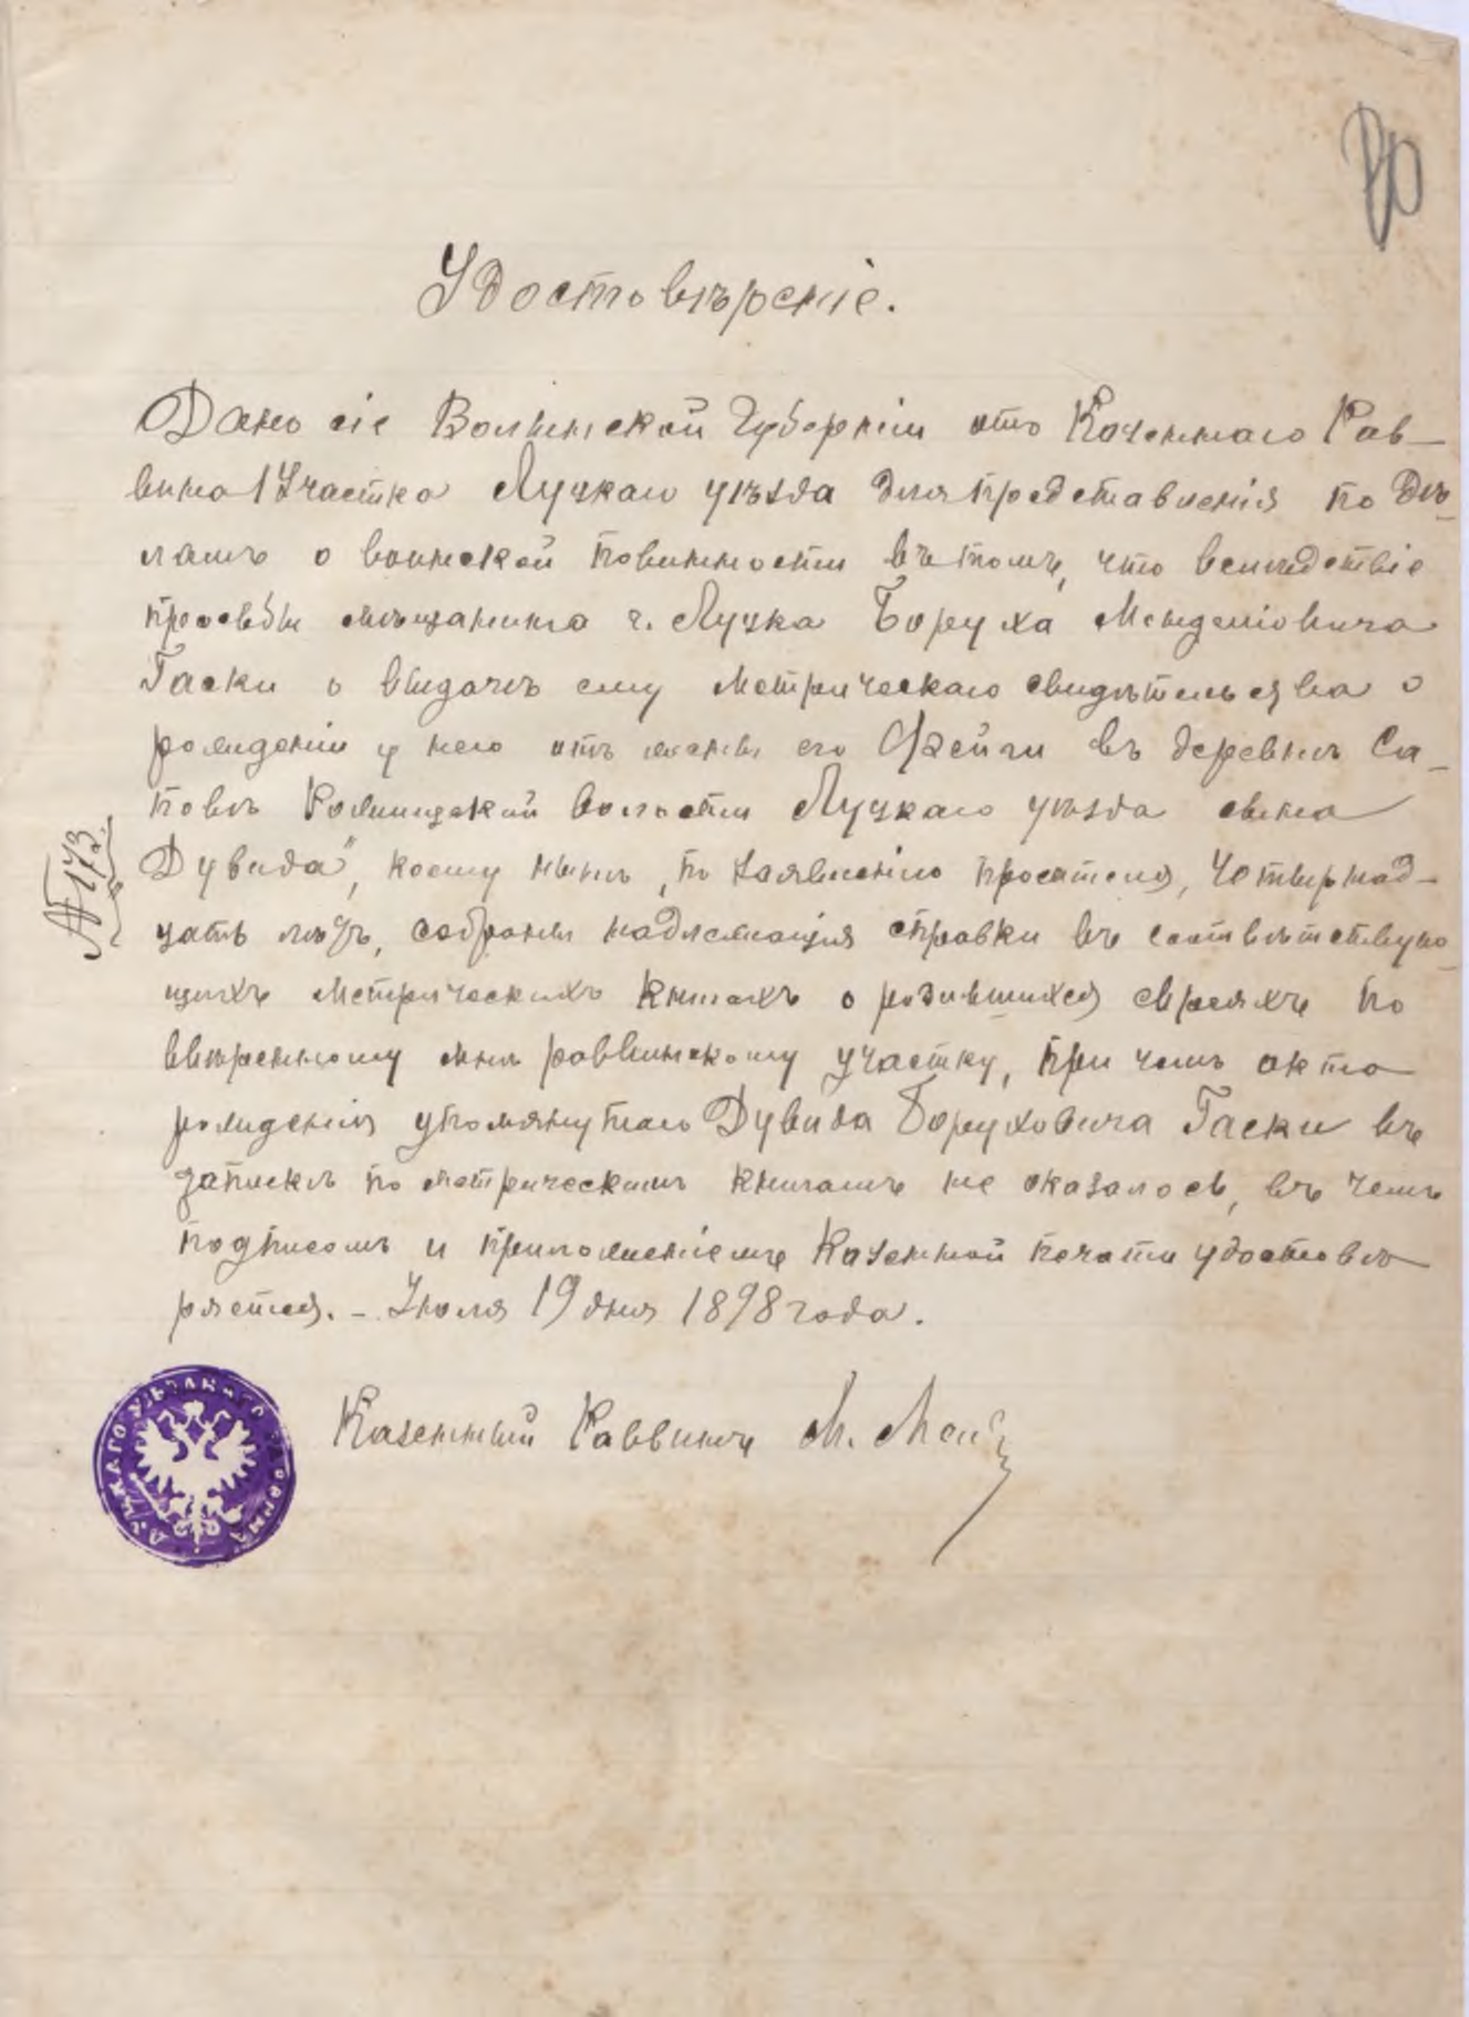 Удостовѣреніе.
Дано сіе Волынской Губерніи отъ Казеннаго Рав-
вина 1 Участка Луцкаго уѣзда для представленія по дѣ-
ламъ о воинской повинности въ томъ, что вслѣдствіе
просьбы мѣщанина г. Луцка Боруха Менделіовича
Гаски о выдачѣ ему метрическаго свидѣтельства о
рожденіи у него отъ жены его Фейги въ деревнѣ Са-
повѣ Рожищской волости Луцкаго уѣзда сына
№ 173.
Дувида", коему нынѣ, по заявленію просителя, четырнад-
цать лѣтъ, собраны надлежащія справки въ соотвѣтствую-
щихъ метрическихъ книгахъ о родившихся евреяхъ по
ввѣренному мнѣ раввинскому участку, при чемъ акта
рожденія упомянутаго Дувида Боруховича Гаски въ
запискѣ по метрическимъ книгамъ не оказалось, въ чемъ
подписомъ и приложеніемъ Казенной печати удостовѣ-
ряется. – Июля 19 дня 1898 года.
Казенный Раввинъ М.
ЛУЦКАГО УѢЗДНАГО РАВВИНА